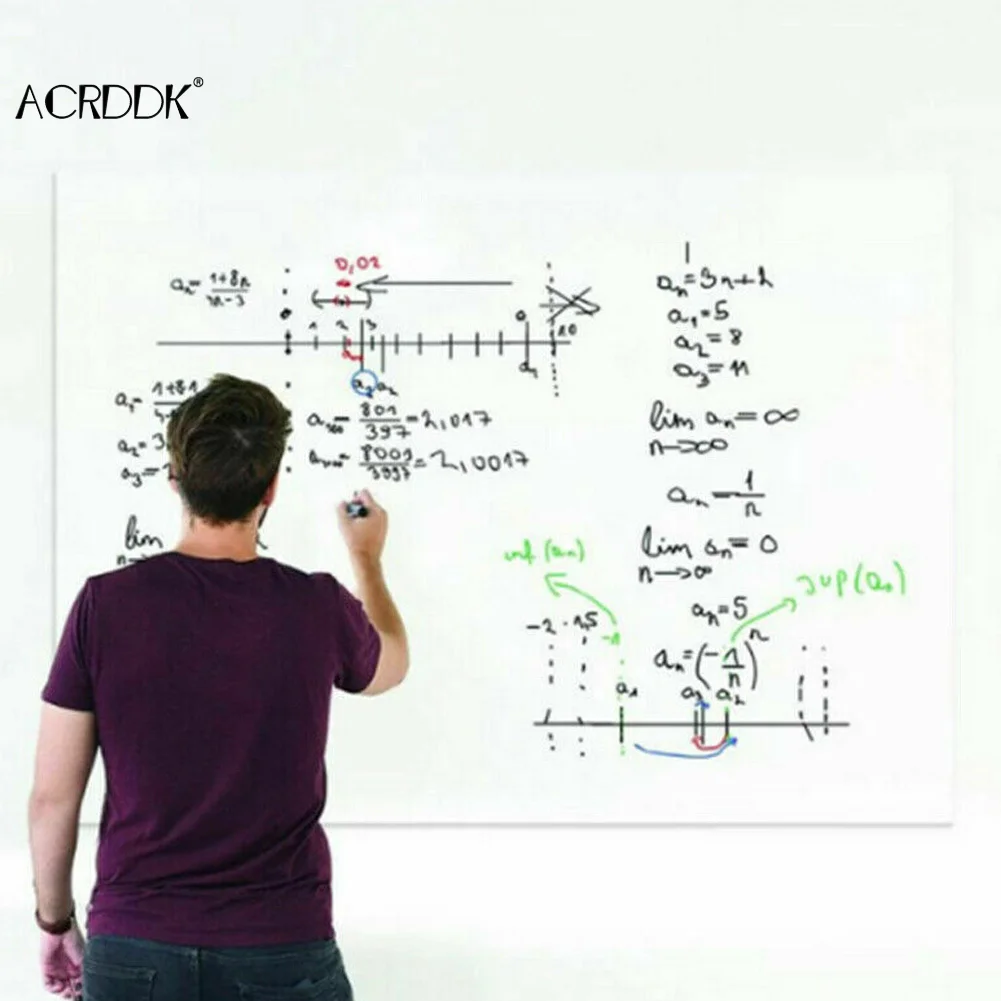 ACRDDK®
0,02
aₙ = (1+8n)/(3n-3)
1 2 3
10
a₁
a₃ a₂
a₁ = 1+8·1
a₂ = 3
a₃ =
a₁₀₀ = 801/397 = 2,017
a₁₀₀₀ = 8001/3997 = 2,0017
lim
n→
aₙ = 3n+2
a₁ = 5
a₂ = 8
a₃ = 11
lim aₙ = ∞
n→∞
aₙ = 1/n
lim aₙ = 0
n→∞
inf (aₙ)
sup (aₙ)
aₙ = 5
-2 -1,5
-1
aₙ = (-1/n)ⁿ
a₁ a₃ a₂